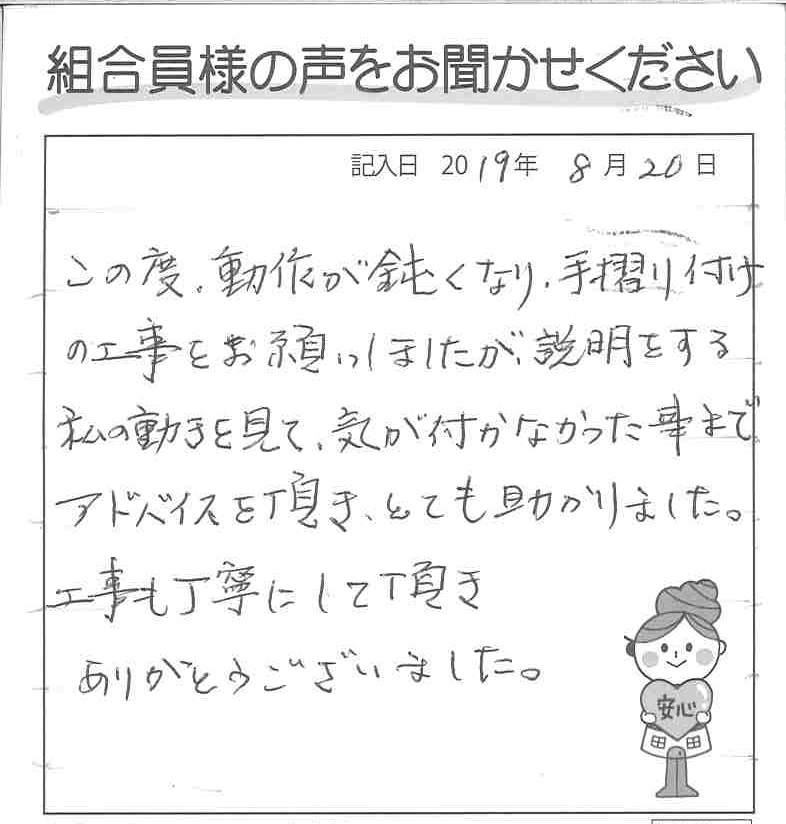 組合員様の声をお聞かせください
記入日 2019年 8月20日
この度、動作が鈍くなり、手摺り付け
の工事をお願いしましたが、説明をする
私の動きを見て、気が付かなかった事まで
アドバイスを頂き、とても助かりました。
工事も丁寧にして頂き
ありがとうございました。
安心